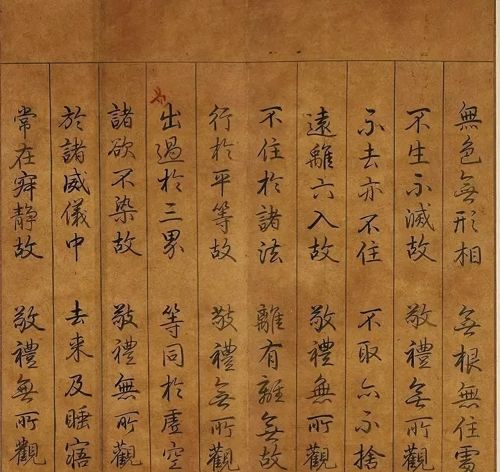 無色無形相 無根無住處
不生不滅故 敬禮無所觀
不去亦不住 不取亦不捨
遠離六入故 敬禮無所觀
不住於諸法 離有離無故
行於平等故 敬禮無所觀
出過於三界 等同於虛空
諸欲不染故 敬禮無所觀
於諸威儀中 去來及睡寤
常在寂靜故 敬禮無所觀